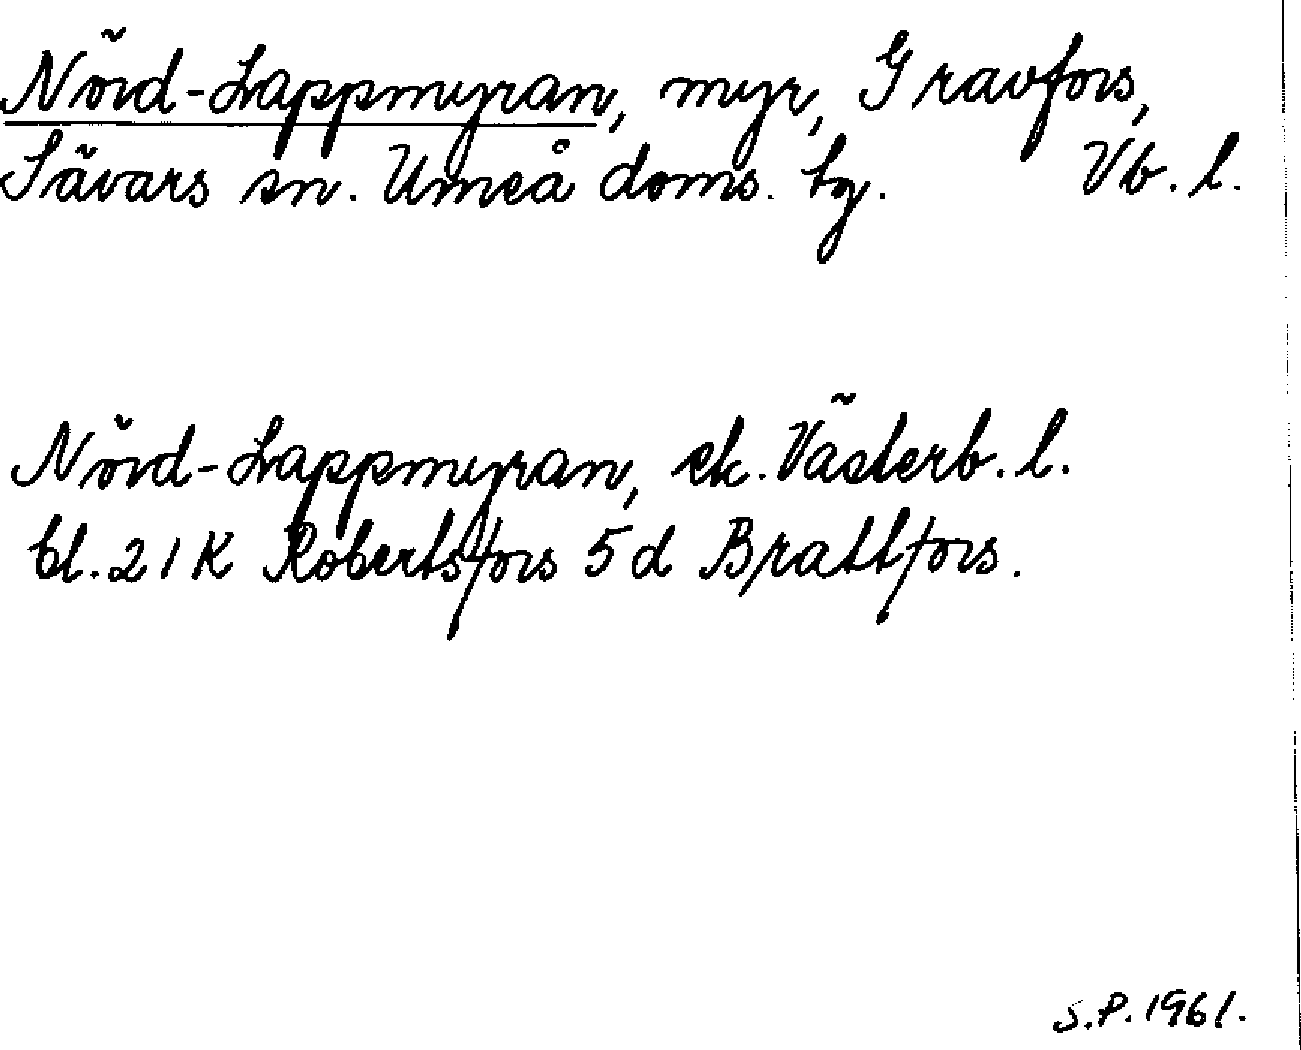 Nörd-Lappmyran, myr, Gravfors,
Sävars sn. Umeå doms. tg. Vb. l.
Nörd-Lappmyran, ek. Västerb. l.
bl. 21 K Robertsfors 5 d Brattfors.
S.P. 1961.